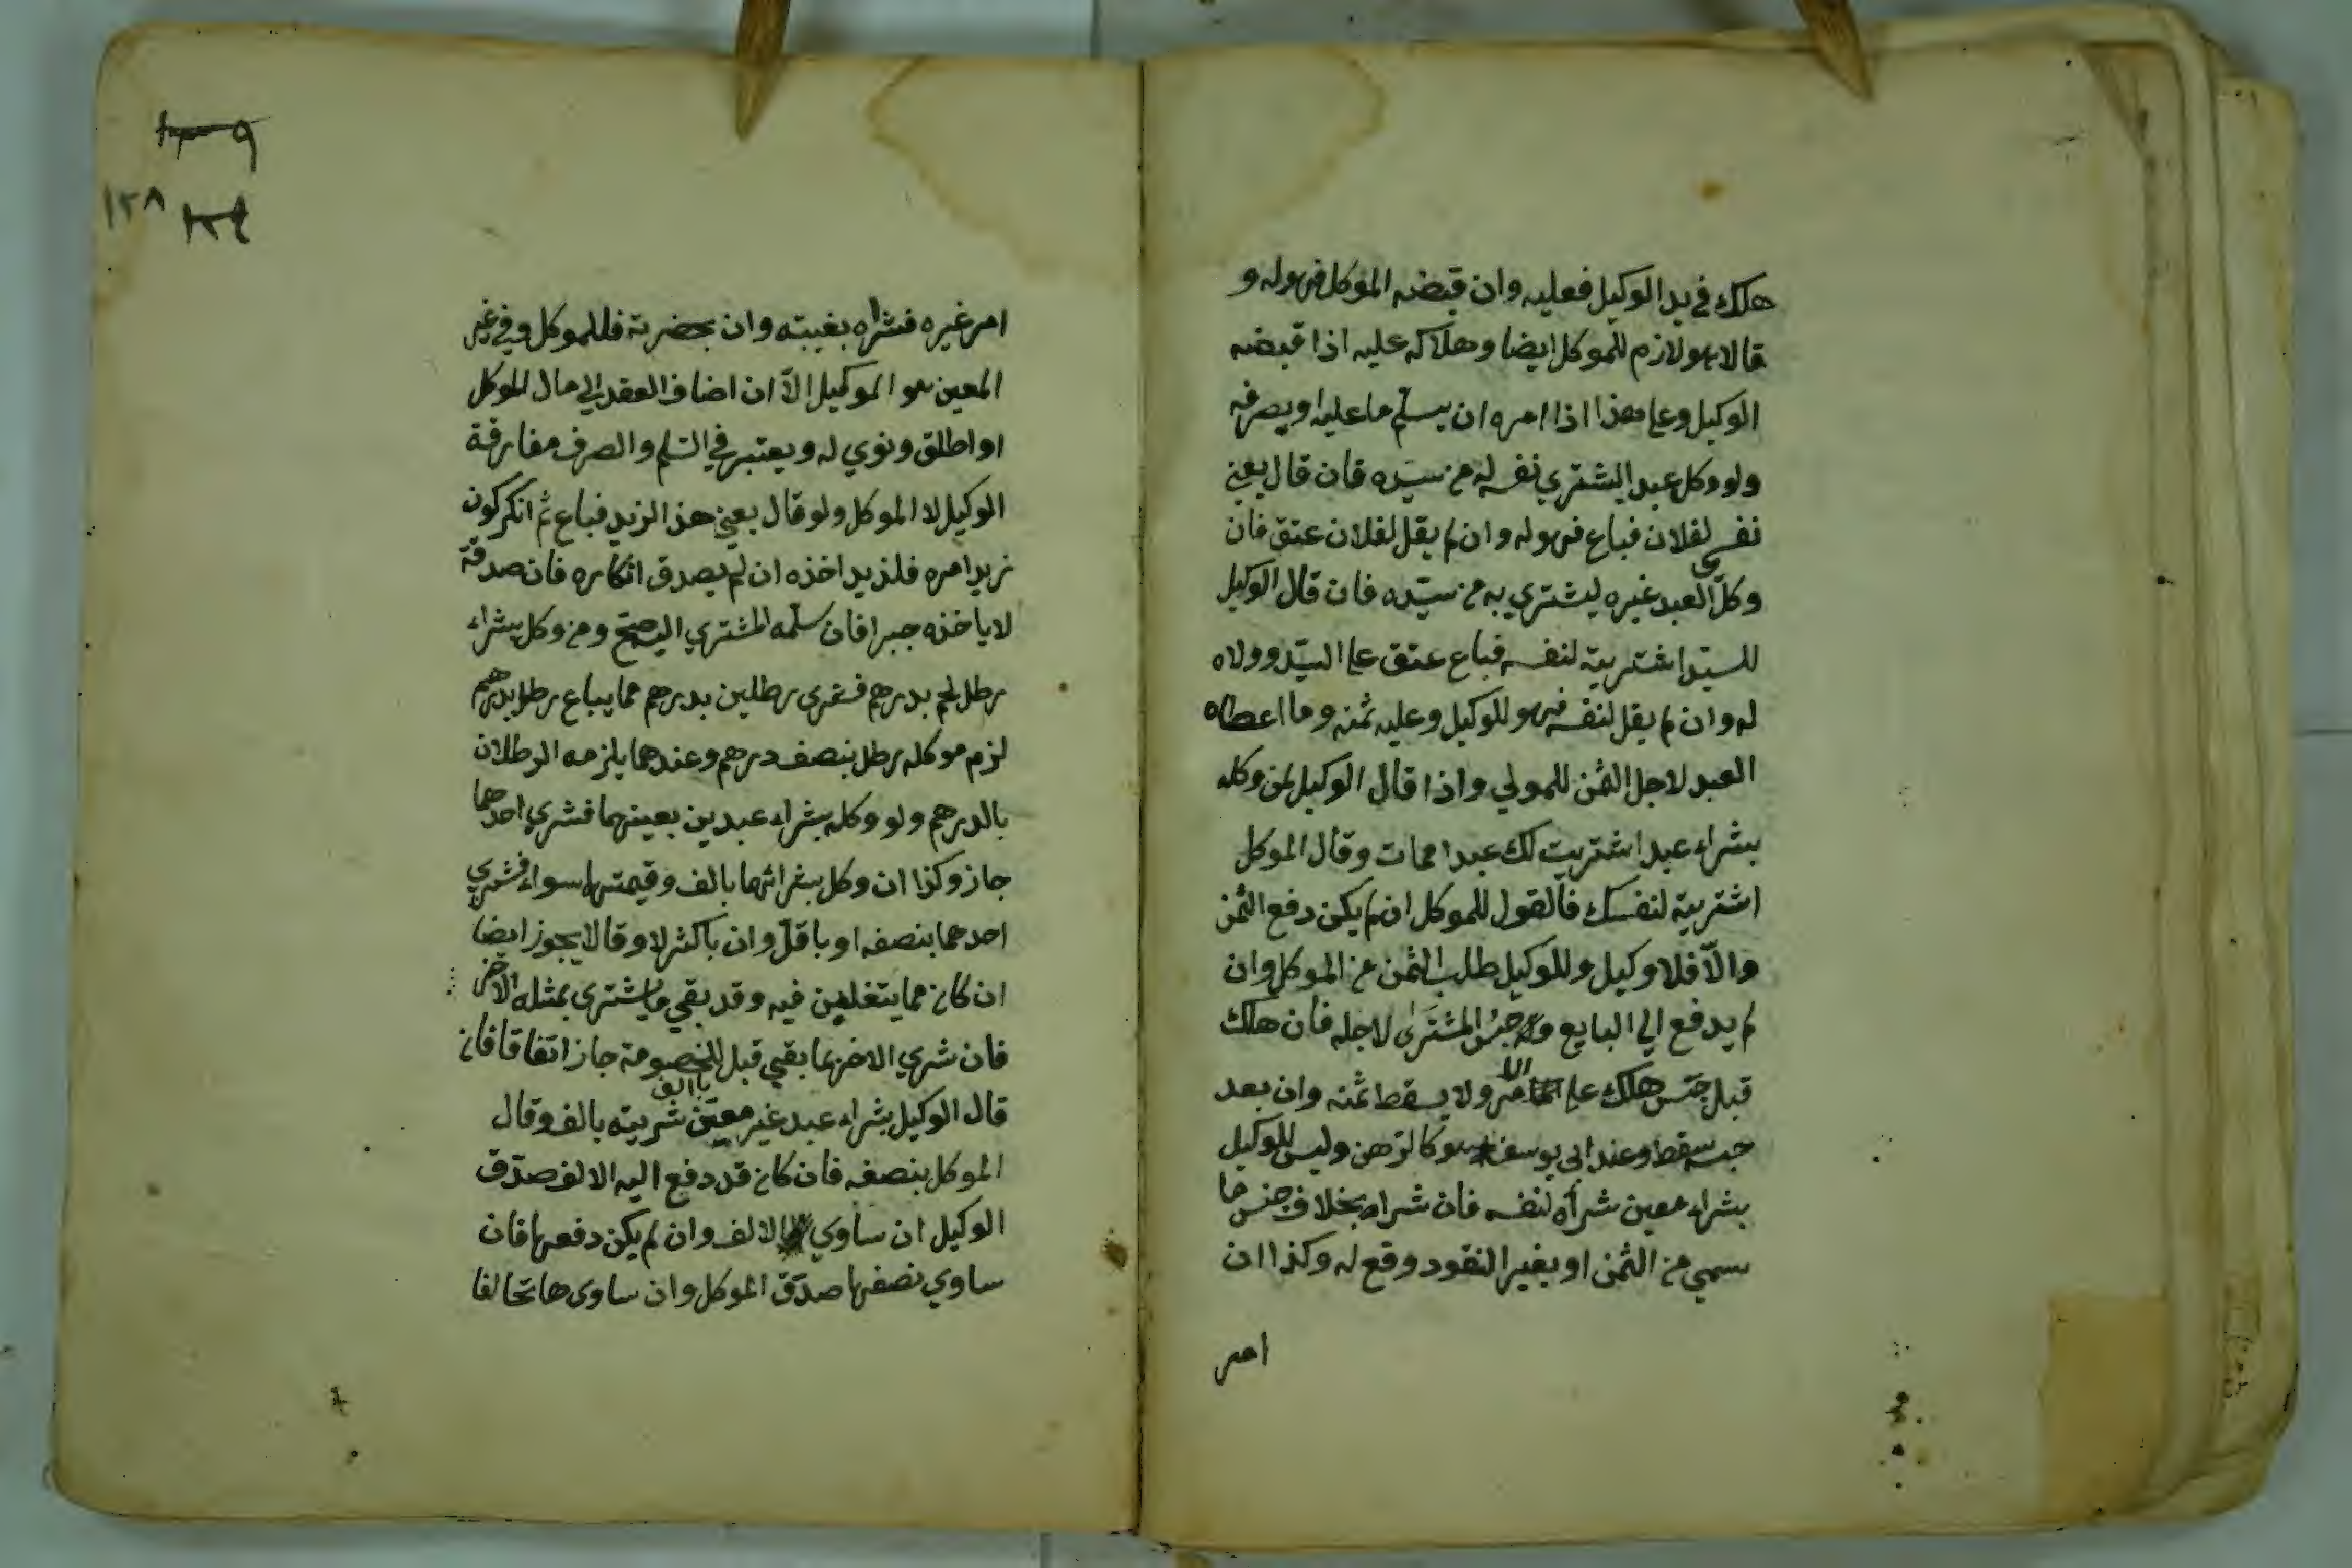 هلك في يد الوكيل فعليه وان قبضه الموكل فهو له و
قالا هو لازم للموكل ايضا وهلاكه عليه اذا قبضه
الوكيل وعلى هذا اذا امره ان يسلم ما عليه او يصرفه
ولو وكل عبد اليشتري نفسه له من سيده فان قال بعني
نفسي لفلان فباع فهو له وان لم يقل لفلان عتق فان
وكل العبد غيره ليشتري به من سيّده فان قال الوكيل
للسيّد اشتريته لنفسه فباع عتق على السيّد وولاه
له وان لم يقل لنفسه فهو للوكيل وعليه ثمنه وما اعطاه
العبد لاجل الثمن للمولي واذا قال الوكيل لمن وكله
بشراء عبد اشتريت لك عبدا فمات وقال الموكل
اشتريته لنفسك فالقول للموكل ان لم يكن دفع الثمن
والّا فللوكيل وللوكيل طلب الثمن من الموكل وان
لم يدفع الي البايع وله حبس المشترى لاجله فان هلك
قبل حبس هلك على الامر ولا يسقط ثمنه وان بعد
حبسه سقط وعند ابي يوسف هو كالرهن وليس للوكيل
بشراء معين شراه لنفسه فان شراه بخلاف جنس ما
سمي من الثمن او بغير النقود وقع له وكذا ان
امر
١٢٨
امر غيره فشراه بغيبته وان بحضرته فللموكل وفي غير
المعين هو الموكيل الاّ ان اضاف العقد الي مال الموكل
او اطلق ونوي له ويعتبر في السّلم والصرف مفارقة
الوكيل لا الموكل ولو قال بعني هذا لزيد فباع ثم انكر كون
زيد امره فلزيد اخذه ان لم يصدق انكاره فان صدقه
لا ياخذه جبرا فان سلّمه المشتري اليه صح ومن وكل بشراء
رطل لحم بدرهم فشرى رطلين بدرهم مما يباع رطل بدرهم
لزم موكله رطل بنصف درهم وعندهما يلزمه الرطلان
بالدرهم ولو وكله بشراء عبدين بعينهما فشري احدهما
جاز وكذا ان وكل بشرائهما بالف وقيمتهما سواء فشري
احدهما بنصفه او باقلّ وان باكثر لا وقالا يجوز ايضا
ان كان مما يتغابن فيه وقد بقي ما يشترى بمثله الاخر
فان شري الاخر بما بقي قبل الخصومة جاز اتفاقا فان
قال الوكيل بشراء عبد غير معيّن باالف شريته بالف وقال
الموكل بنصفه فان كان قد دفع اليه الالف صدّق
الوكيل ان ساوي الالف وان لم يكن دفعها فان
ساوي نصفها صدّق الموكل وان ساوى ها تحالفا